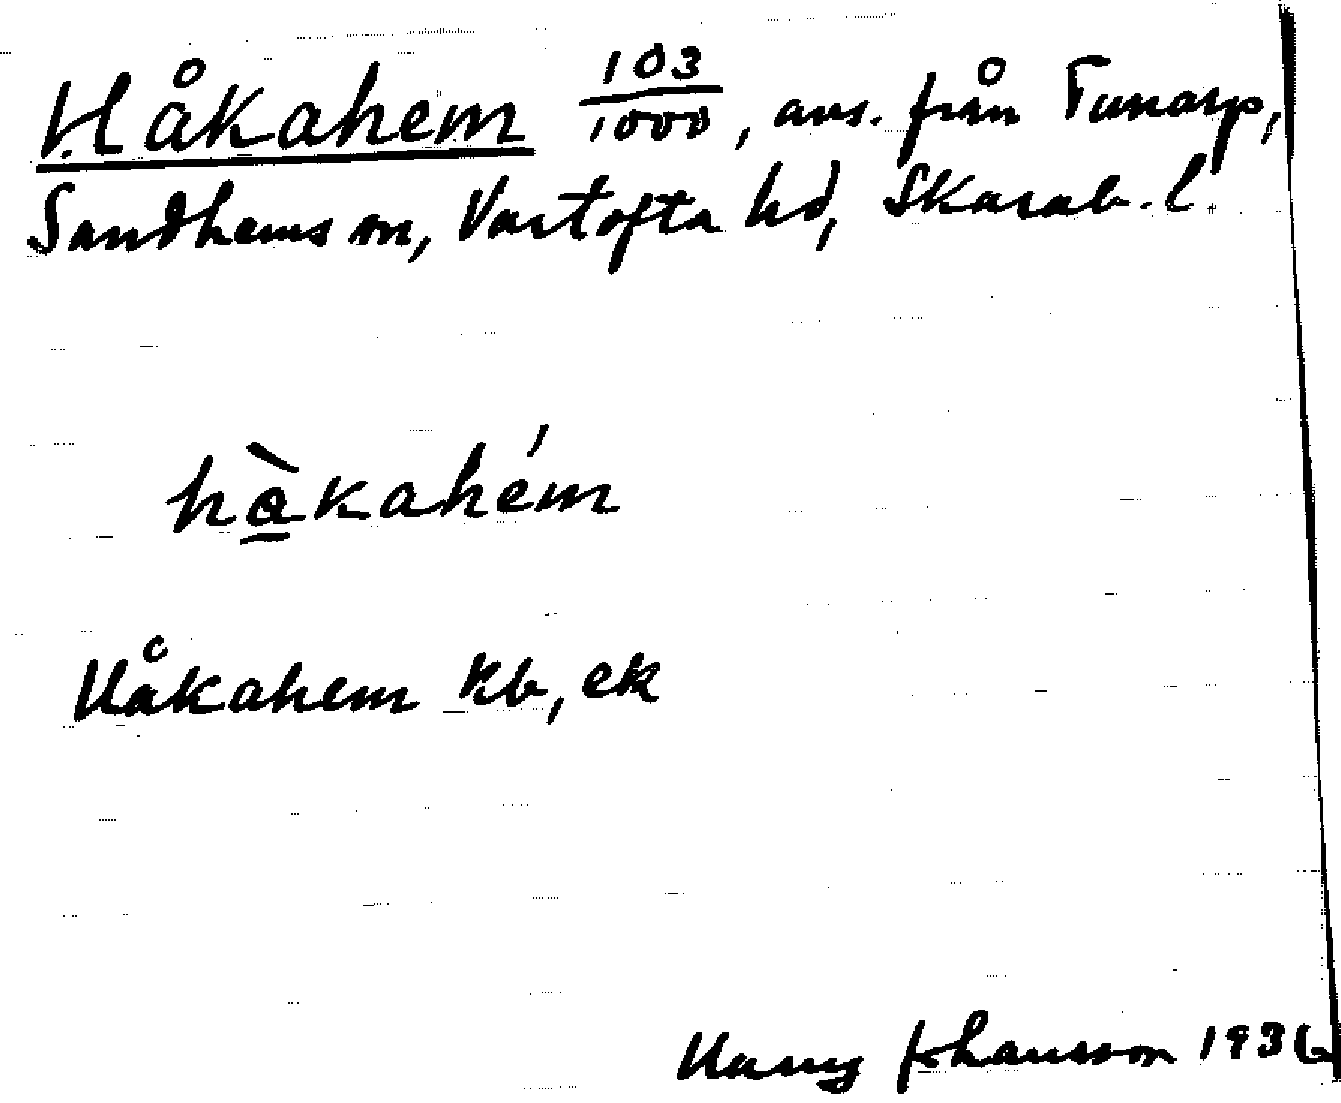 Håkahem 103/1000, avs. från Tunarp,
Sandhems sn, Vartofta hd, Skarab. l.
hàkahém
Håkahem kb, ek
Harry Johansson 1936